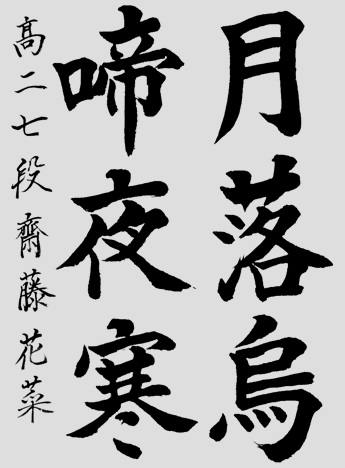 月落烏
啼夜寒
高二七段齋藤花菜